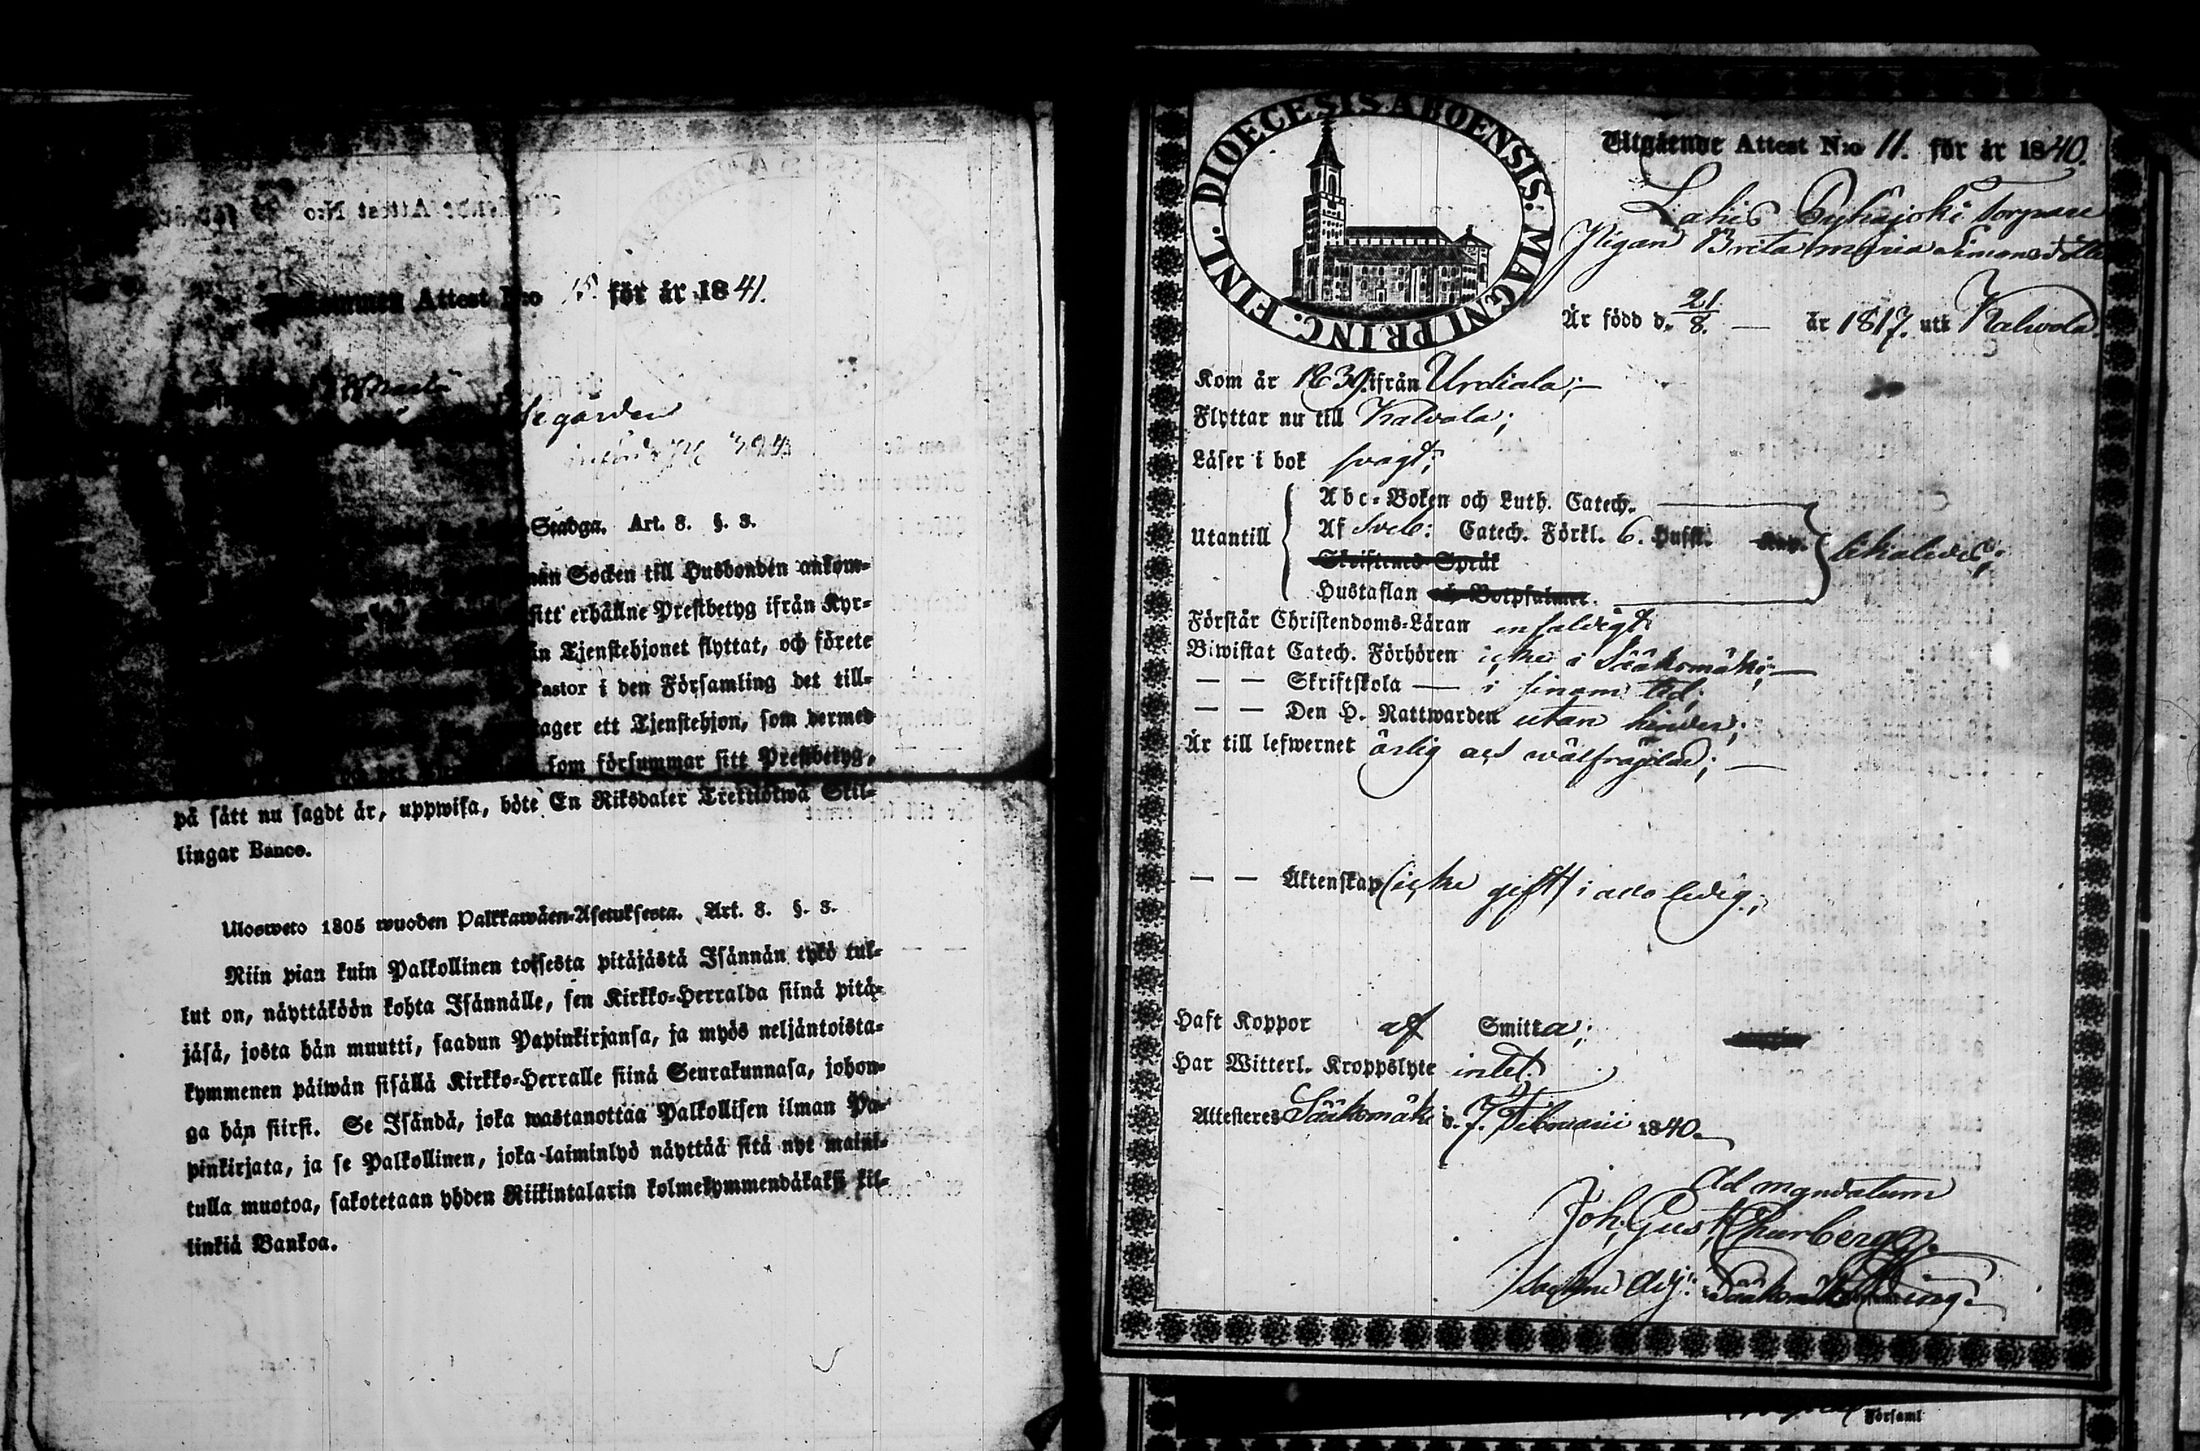 Attest N:o 15. för år 1841.
garden
Stadga. Art. 8. §. 3.
Socken till Husbonden ankom-
sitt erhållne Prestbetyg ifrån Kyr-
Tjenstehjonet flyttat, och förete
Pastor i den Församling det till-
tager ett Tjenstehjon, som dermed
som försummar sitt Prestbetyg,
på sätt nu sagdt är, uppwisa, böte En Riksdaler Trettiotwå Skil-
lingar Banco.
Ulosweto 1805 wuoden Palkkawäen-Asetuksesta. Art. 8. §. 3.
Niin pian kuin Palkollinen toisesta pitäjästä Isännän tykö tul-
lut on, näyttäköön kohta Isännälle, sen Kirkko-Herralda siinä pitä-
jäsä, josta hän muutti, saadun Papinkirjansa, ja myös neljäntoista-
kymmenen päiwän sisällä Kirkko-Herralle siinä Seurakunnasa, johon-
ga hän siirsi. Se Isändä, joka wastanottaa Palkollisen ilman Pa-
pinkirjata, ja se Palkollinen, joka laiminlyö näyttää sitä nyt maini-
tulla muotoa, sakotetaan yhden Riikintalarin kolmekymmendäkaksi kil-
linkiä Bankoa.
DIOECESIS ABOENSIS. MAGNI PRINC. FINL.
Utgående Attest N:o 11. för år 1840.
Lahis Pyhäjoki Torpare
Pigan Brita Maria Simonsdotter
Är född d. 21/8. — år 1817. uti Kalvola
Kom år 1839 ifrån Urdiala;
Flyttar nu till Kalvola;
Läser i bok svagt;
Utantill
Abc-Boken och Luth. Catech.
Af Sveb: Catech. Förkl. 6. Hufst.
Skriftens Språk
Hustaflan och Botpsalmer.
likaledes;
Förstår Christendoms-Läran enfaldigt;
Biwistat Catech. Förhören icke i Sääksmäki;
— — Skriftskola — i sinom tid;
— — Den H. Nattwarden utan hinder;
Är till lefwernet ärlig och wälfräjdad;
— — Äktenskap (icke gift) i allo ledig;
Haft Koppor af Smitta;
Har Witterl. Kroppslyte intet.
Attesteras Sääksmäki d. 7. Februarii 1840.
Ad mandatum
Joh. Gust. Thurberg
Församl